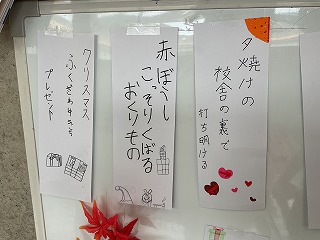 夕焼けの
校舎の裏で
打ち明ける
赤ぼうし
こっそりくばる
おくりもの
クリスマス
ふくざわゆきち
プレゼント